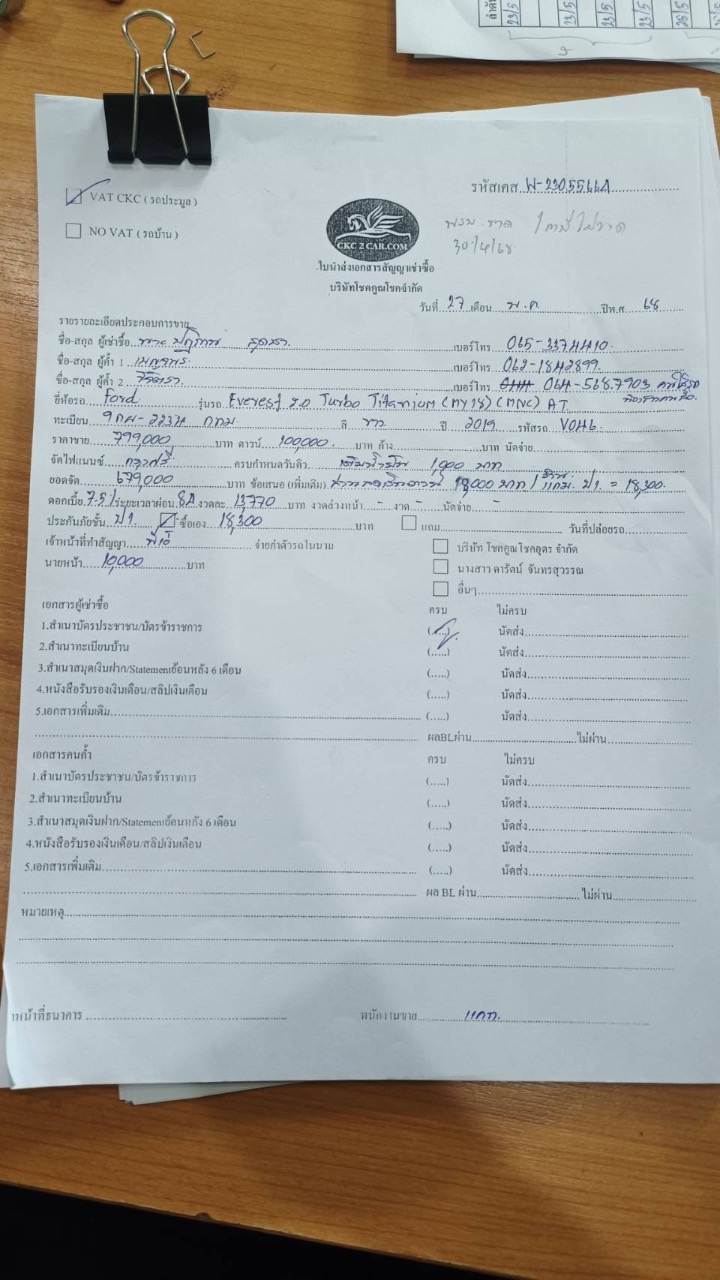 VAT CKC ( รถประมูล )
รหัสเคส W-2305566A
NO VAT ( รถบ้าน )
CKC 2 CAR.COM
พรบ. ขาด
30/4/68
ใบนำส่งเอกสารสัญญาเช่าซื้อ
บริษัทโชคคูณโชคจำกัด
วันที่ 27 เดือน พ.ค. ปีพ.ศ. 68
รายรายละเอียดประกอบการขาย
ชื่อ-สกุล ผู้เช่าซื้อ เบอร์โทร 065-3374410
ชื่อ-สกุล ผู้ค้ำ 1 เบญจพร เบอร์โทร 062-1842899
ชื่อ-สกุล ผู้ค้ำ 2 เบอร์โทร 064-5687903
ยี่ห้อรถ Ford รุ่นรถ Everest 2.0 Turbo Titanium (MY18) (MNC) AT
ทะเบียน 9กฬ-2234 กทม สี ขาว ปี 2019 รหัสรถ V046
ราคาขาย 799,000 บาท ดาวน์ 100,000 บาท ค้าง บาท นัดจ่าย
จัดไฟแนนซ์ กรุงศรี ครบกำหนดวันคิว เติมน้ำมัน 1,000 บาท
ยอดจัด 679,000 บาท ข้อเสนอ (เพิ่มเติม) 18,000 บาท / ป1. = 18,300.
ดอกเบี้ย 7.51 ระยะเวลาผ่อน 84 งวดละ 13,770 บาท งวดล่วงหน้า - งวด - นัดจ่าย -
ประกันภัยชั้น ป1. ซื้อเอง 18,300 บาท แถม วันที่ปล่อยรถ
เจ้าหน้าที่ทำสัญญา พี่เอ๋ จ่ายค่าตัวรถในนาม บริษัท โชคคูณโชคอุดร จำกัด
นายหน้า 10,000 บาท นางสาว ดารัตน์ จันทรสุวรรณ
อื่นๆ
เอกสารผู้เช่าซื้อ ครบ ไม่ครบ
1.สำเนาบัตรประชาชน/บัตรข้าราชการ (.....) นัดส่ง
2.สำเนาทะเบียนบ้าน (.....) นัดส่ง
3.สำเนาสมุดเงินฝาก/Statementย้อนหลัง 6 เดือน (.....) นัดส่ง
4.หนังสือรับรองเงินเดือน/สลิปเงินเดือน (.....) นัดส่ง
5.เอกสารเพิ่มเติม (.....) นัดส่ง
ผลBLผ่าน ไม่ผ่าน
เอกสารคนค้ำ ครบ ไม่ครบ
1.สำเนาบัตรประชาชน/บัตรข้าราชการ (.....) นัดส่ง
2.สำเนาทะเบียนบ้าน (.....) นัดส่ง
3.สำเนาสมุดเงินฝาก/Statementย้อนหลัง 6 เดือน (.....) นัดส่ง
4.หนังสือรับรองเงินเดือน/สลิปเงินเดือน (.....) นัดส่ง
5.เอกสารเพิ่มเติม (.....) นัดส่ง
ผล BL ผ่าน ไม่ผ่าน
หมายเหตุ
หน้าที่ธนาคาร พนักงานขาย